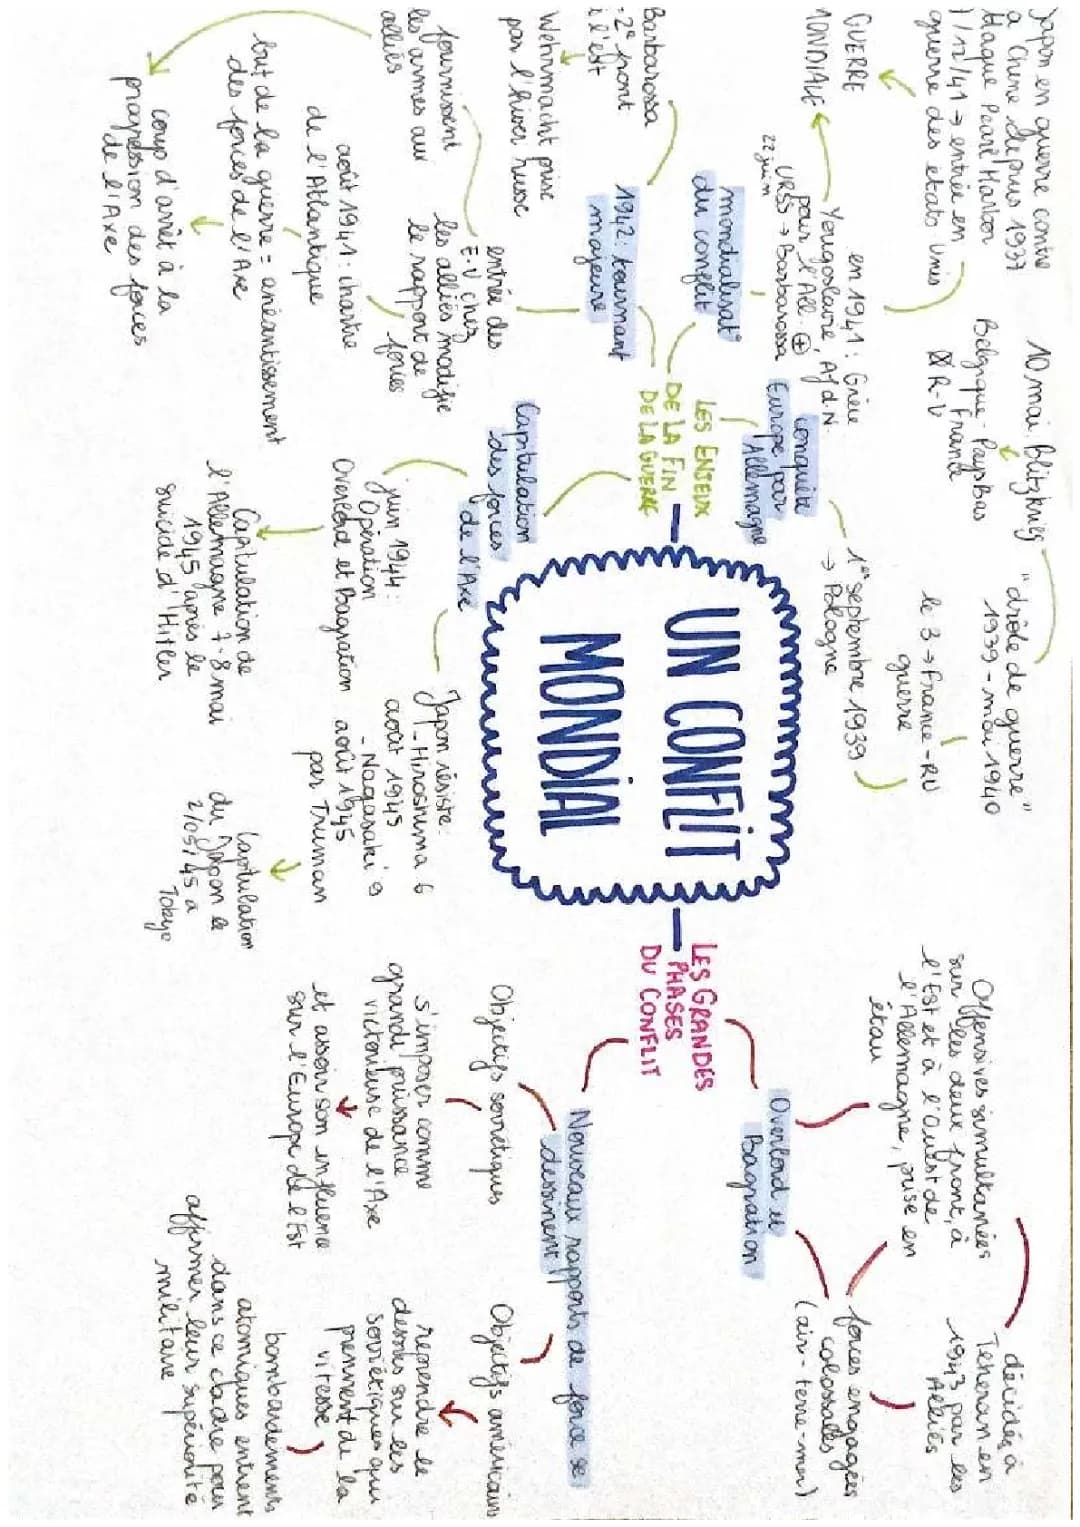 UN CONFLIT
MONDIAL
LES ENJEUX
DE LA FIN
DE LA GUERRE
conquête
Europe par
Allemagne
1er septembre 1939
→ Pologne
le 3 → France - RU
guerre
"drôle de guerre"
1939 - mai 1940
10 mai, Blitzkrieg
Belgique - Pays Bas
France
R-V
mondialisat°
du conflit
en 1941 : Grèce
Yougoslavie, Afd-N.
pour l'All. ⊕
URSS → Barbarossa
22 juin
Japon en guerre contre
a Chine depuis 1937
ttaque Pearl Harbor
7/12/41 → entrée en
guerre des états Unis
GUERRE
MONDIALE
1942: tournant
majeure
Barbarossa
= 2e front
à l'est
Wehrmacht prise
par l'hiver russe
entrée des
E-U chez
les alliés modifie
le rapport de
forces
fournissent
les armes aux
alliés
août 1941 : chartre
de l'Atlantique
but de la guerre = anéantissement
des forces de l'Axe
coup d'arrêt à la
progression des forces
de l'Axe
Capitulation
des forces
de l'Axe
juin 1944 :
Opération
Overlord et Bagration
Capitulation de
l'Allemagne 7-8 mai
1945 après le
suicide d'Hitler
Japon résiste
- Hiroshima 6
août 1945
- Nagasaki 9
août 1945
par Truman
Capitulation
du Japon le
2/09/45 a
Tokyo
LES GRANDES
PHASES
DU CONFLIT
Overlord et
Bagration
Offensives simultanées
sur les deux front, à
l'Est et à l'Ouest de
l'Allemagne, prise en
étau
décidés à
Téhéran en
1943 par les
Alliés
forces engagées
colossales
(air - terre - mer)
Nouveaux rapports de force se
dessinent
Objectifs soviétiques
s'imposer comme
grande puissance
victorieuse de l'Axe
et assoir son influence
sur l'Europe de l'Est
Objectifs américains
reprendre le
dessus sur les
soviétiques qui
prennent de la
vitesse
bombardements
atomiques entrent
dans ce cadre pour
affirmer leur supériorité
militaire